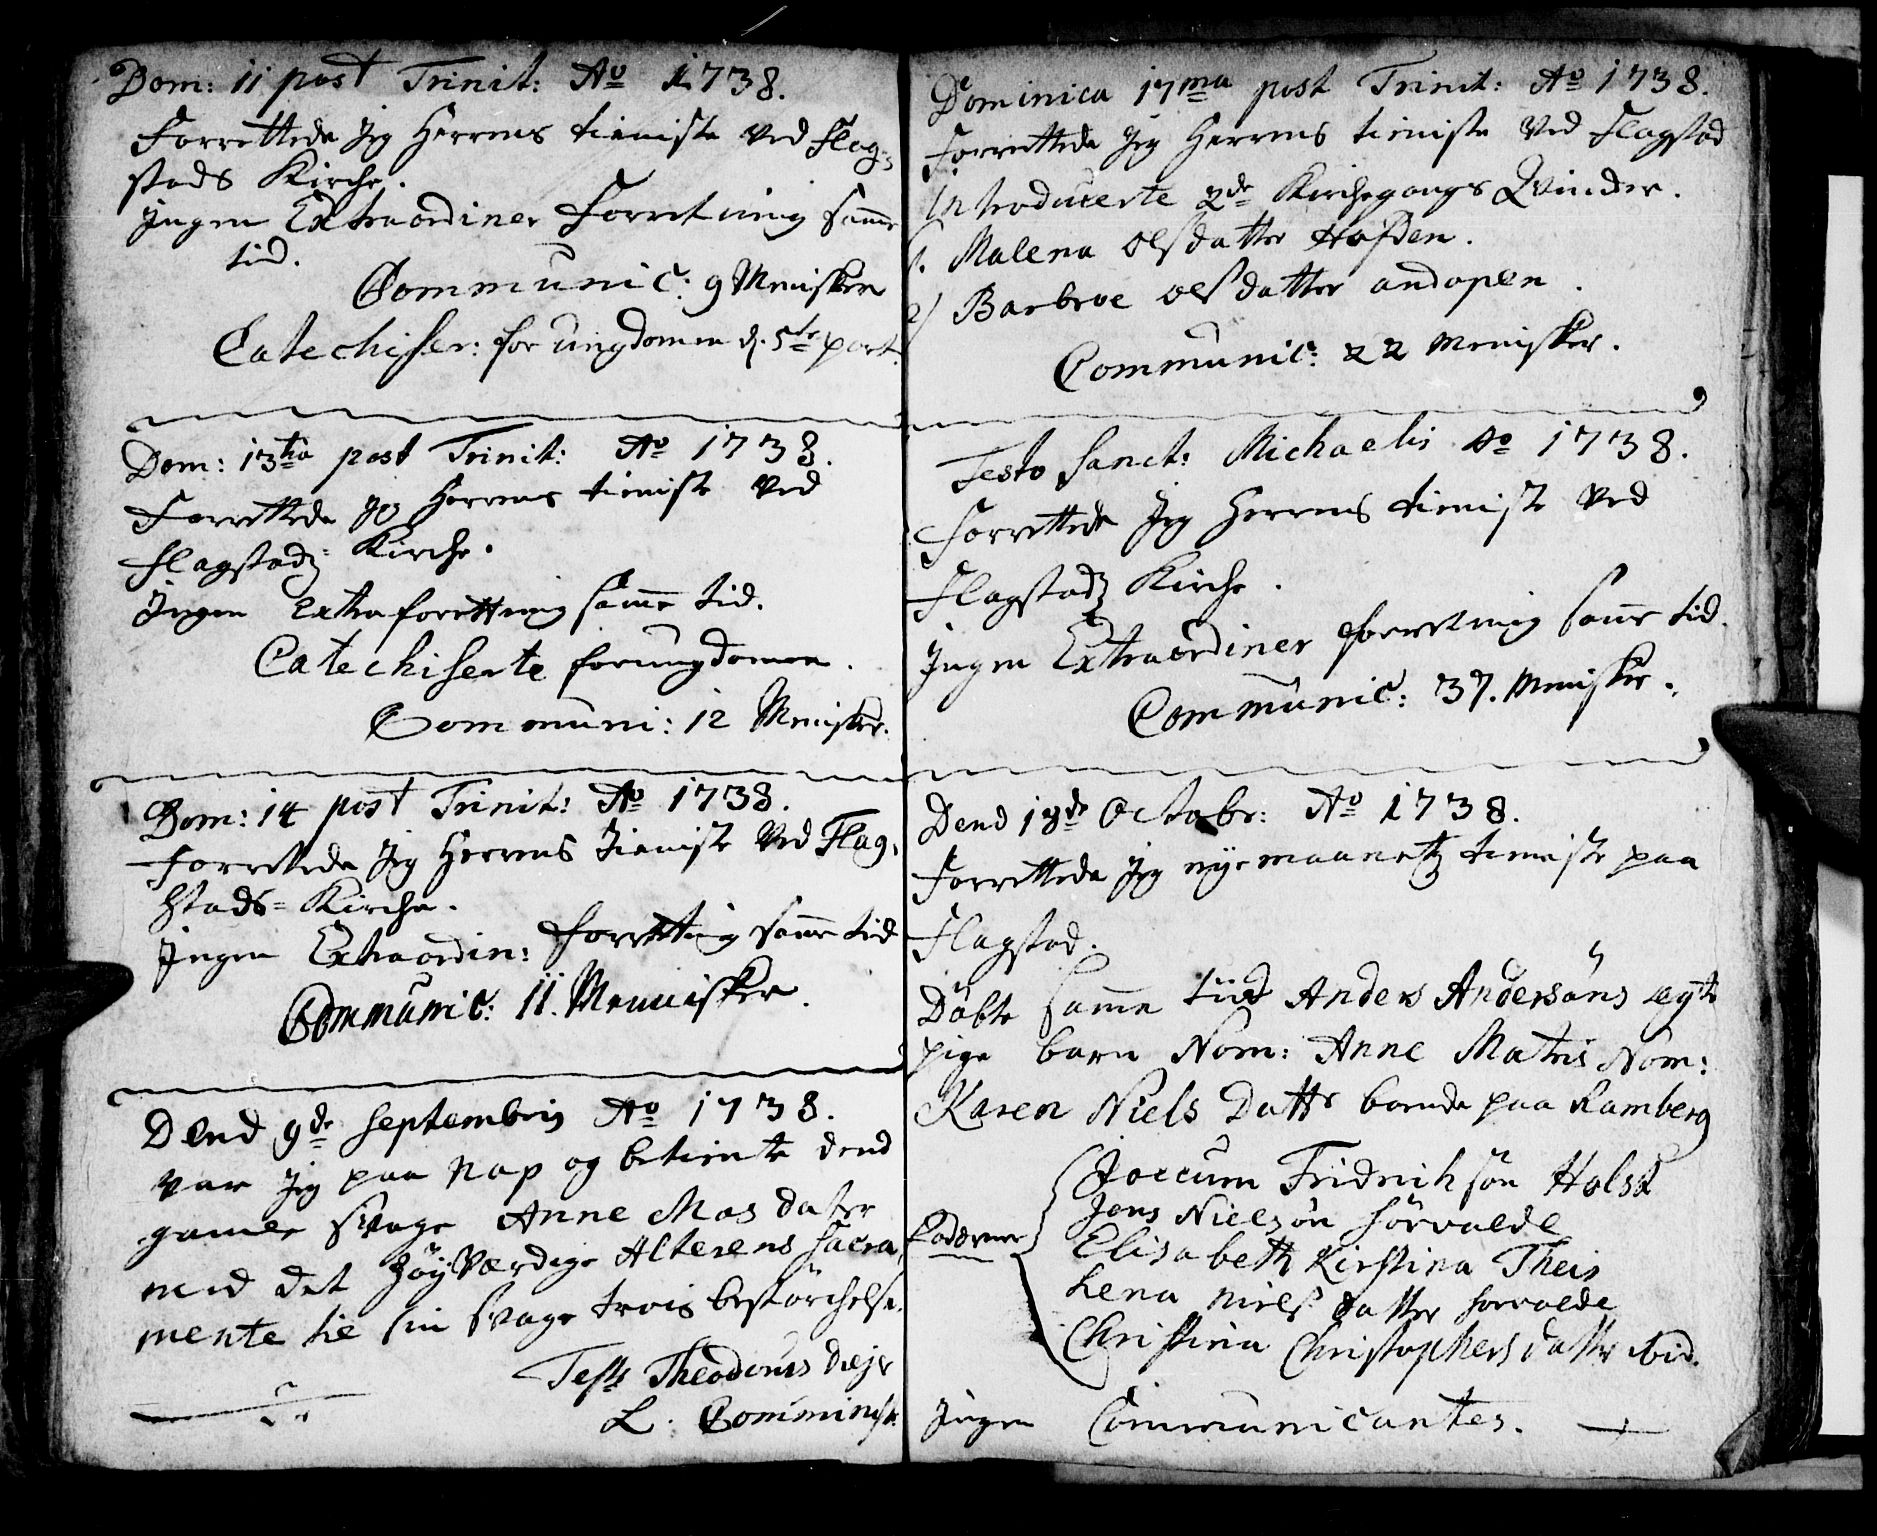 Dom: 11 post Trinit: Ao 1738.
Forrettede Jeg Herrens tieniste ved Flag=
stads Kirche.
Ingen Extraordiner Forretning samme
tid.
Communic: 9 Menisker
Catechiser: for ungdomen d. 5te part.
Dom: 13tia post Trinit: Ao 1738.
Forrettede Jeg Herrens tieniste ved
Flagstadz Kirche.
Ingen Extra forettning samme tid.
Catechiserte for ungdomen.
Communi: 12 Menisker.
Dom: 14 post Trinit: Ao 1738.
Forrettede Jeg Herrens Tieniste ved Flag=
stads= Kirche.
Ingen Extraordin: forretting samme tid
Communic: 11. Mennisker.
Dend 9de septembris Ao 1738.
var Jeg paa Nap og betiente dend
gamle svage Anne Mas dater
med det høyværdige Alterens sacra
mente til sin svage trois bestørchelse.
Test Theodorus
L.
Dominica 17ma post Trinit: Ao 1738.
Forrettede Jeg Herrens tieniste ved Flagstad
Introducerte 2de Kirchegangs Qvinder.
1. Malena olsdatter Hofden.
2) Barbroe olsdatter andopen.
Communic: 22 menisker.
Festo Sanct: Michaelis Ao 1738.
Forrettede Jeg Herrens tieniste ved
Flagstadz Kirche.
Ingen Extraordiner forretning samme tid.
Communic: 37. Menisker.
Dend 18de Octobr: Ao 1738.
Forrettede Jeg nye maanetz tieniste paa
Flagstad.
Døbte samme tiid Anders Andersøns egte
pige barn Nom: Anne Matris Nom:
Karen Niels Datter boende paa Ramberg
Faderne
Joccum Fridrich søn Holst
Jens Nielsøn Sørvalde
Elisabeth Kirstina Theis
Lena Niels datter sorvalde
Christina Christophers datter ibid.
Ingen Communicantes.